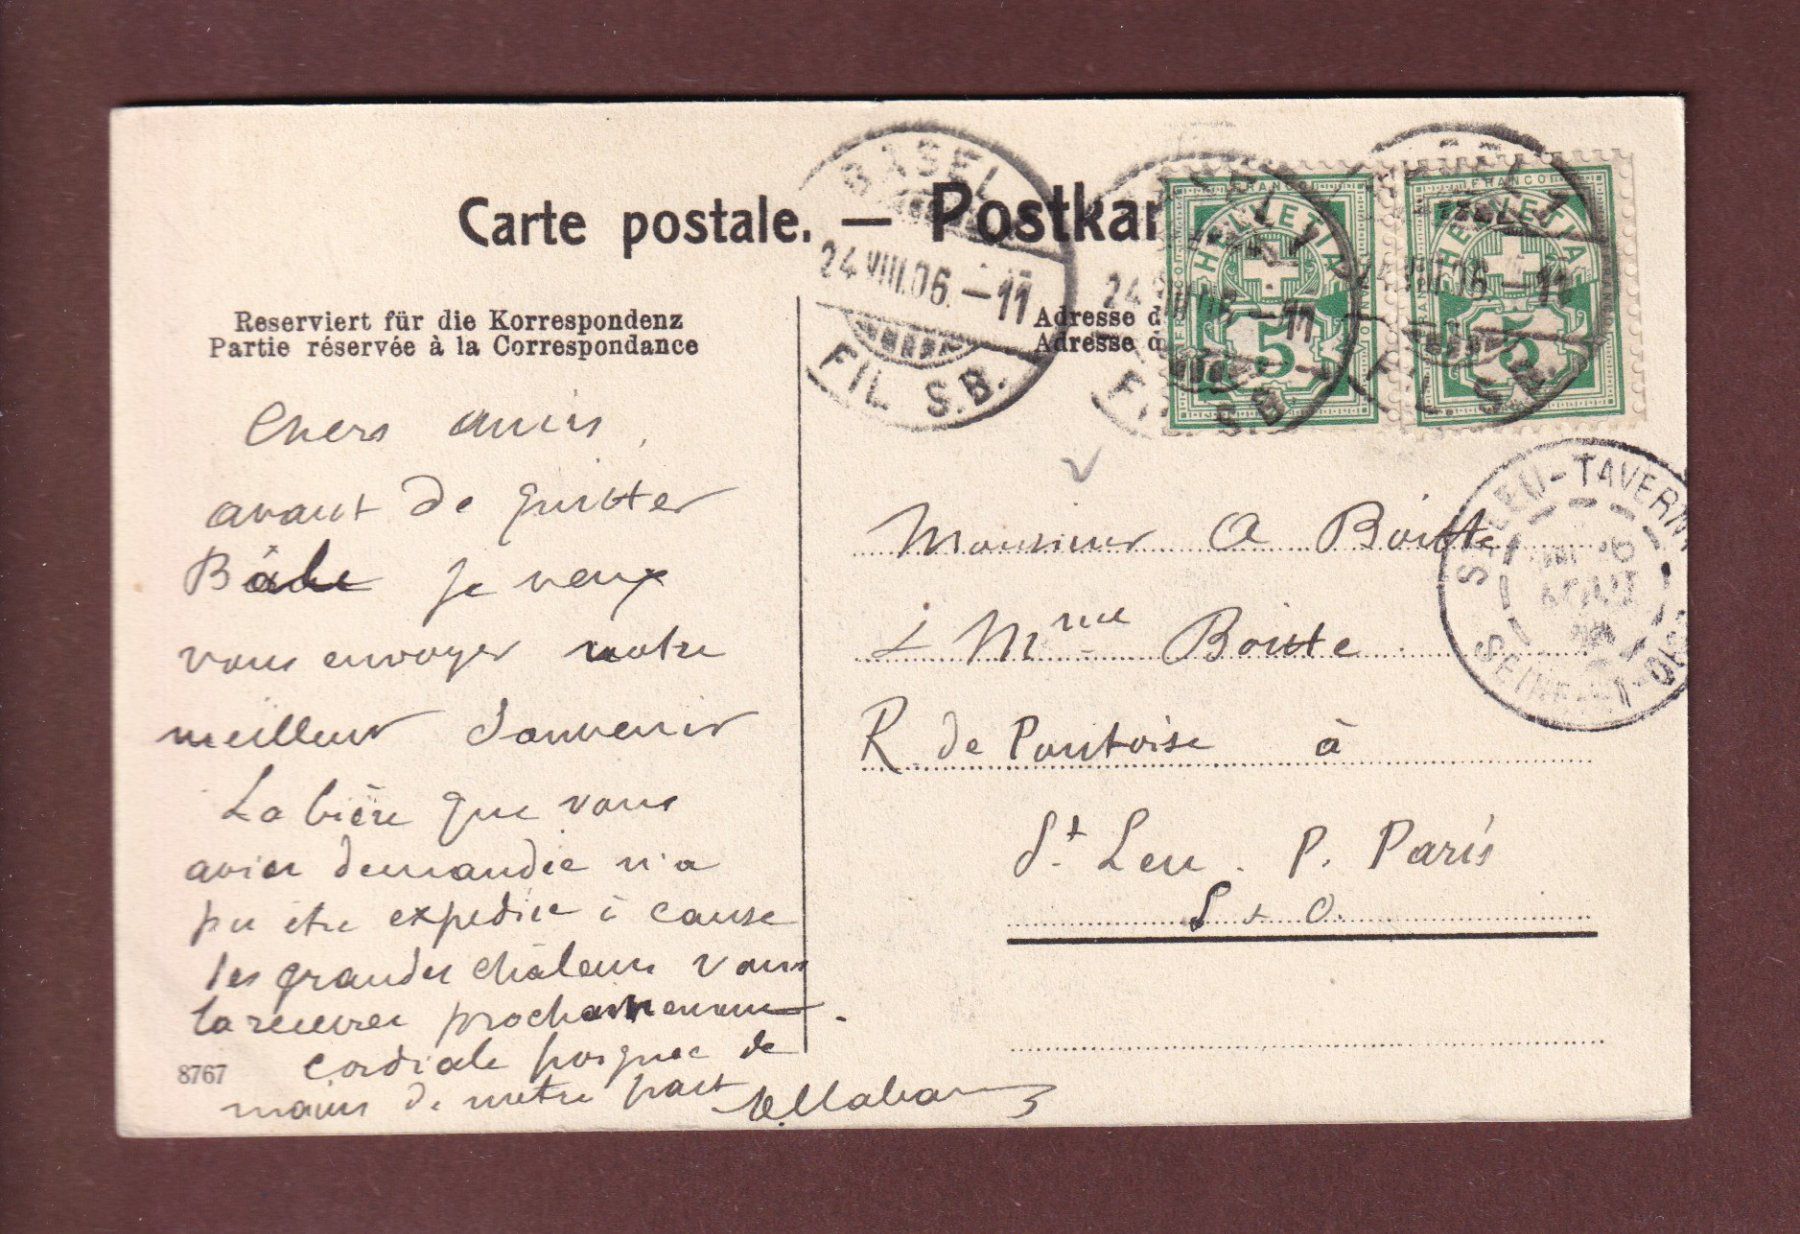 Carte postale. — Postkar
BASEL
24 VIII.06. – 11
FIL. S.B.
24 VIII.06 – 11
FIL. S.B.
24 VIII.06 – 11
FIL. S.B.
FRANCO
HELVETIA
5
FRANCO
HELVETIA
5
Reserviert für die Korrespondenz
Partie réservée à la Correspondance
Adresse d
Adresse d
Chers amis,
avant de quitter
Bâle je veux
vous envoyer notre
meilleur Souvenir
La bière que vous
aviez demandée n'a
pu être expédiée à cause
des grandes châleurs vous
la recevrez prochainement.
cordiale poignée de
mains de notre part
8767
Monsieur A Boitte
& Mme Boitte
R. de Pontoise à
St Leu. P. Paris
S & O.
ST-LEU-TAVERN
26
AOUT
SEINE-ET-OISE